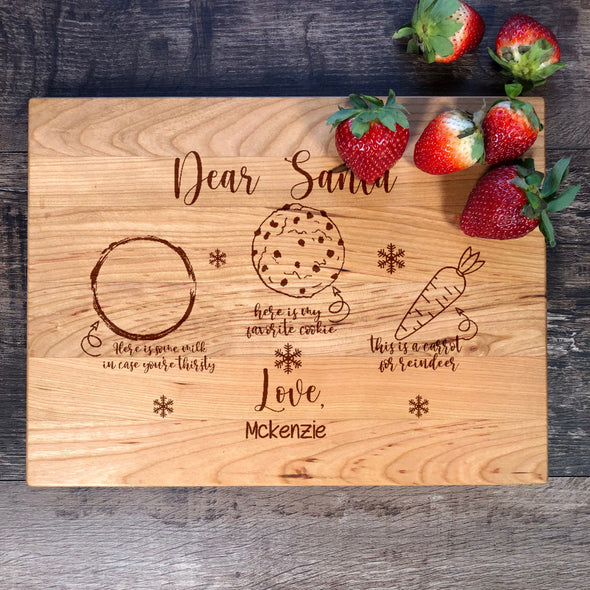 Dear Santa
here is my
favorite cookie
Here is some milk
in case you're thirsty
this is a carrot
for reindeer
Love,
Mckenzie